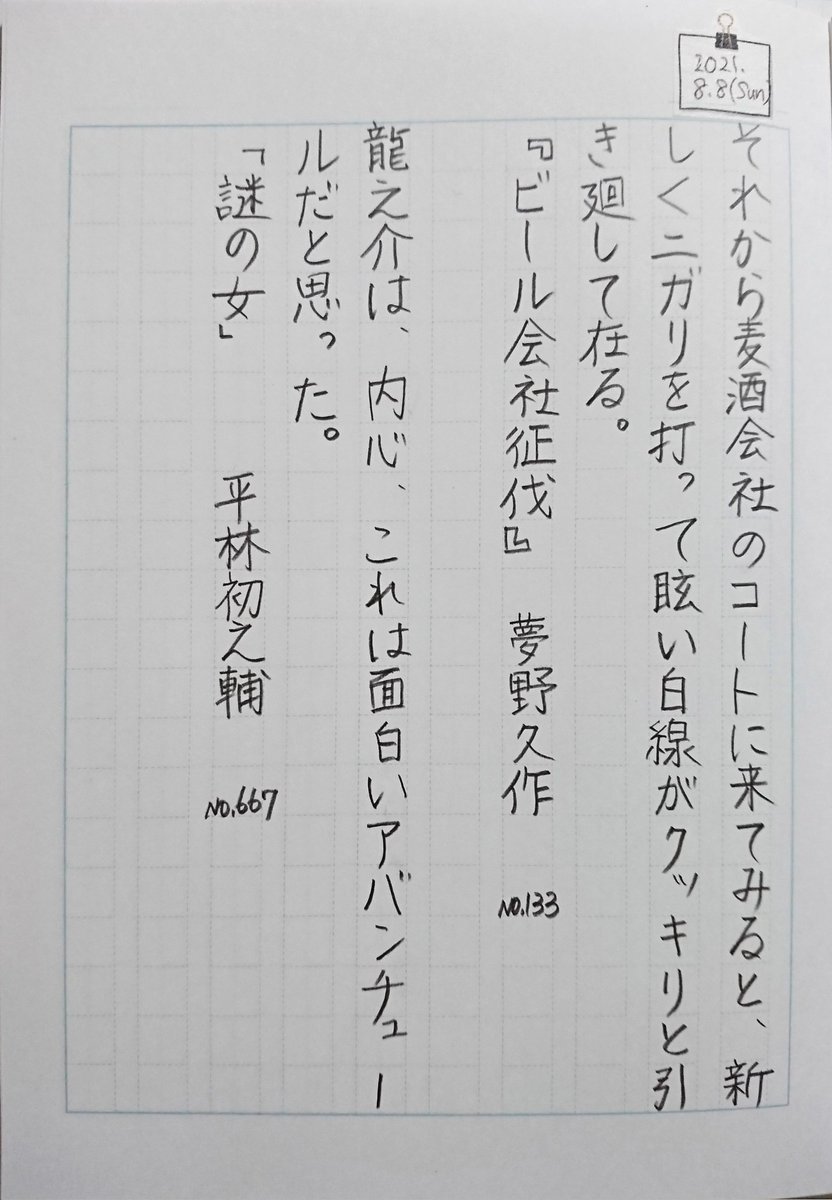 2021.
8.8(Sun)
それから麦酒会社のコートに来てみると、新
しくニガリを打って眩い白線がクッキリと引
き廻して在る。
『ビール会社征伐』 夢野久作 No.133
龍之介は、内心、これは面白いアバンチュー
ルだと思った。
「謎の女」 平林初之輔 No.667